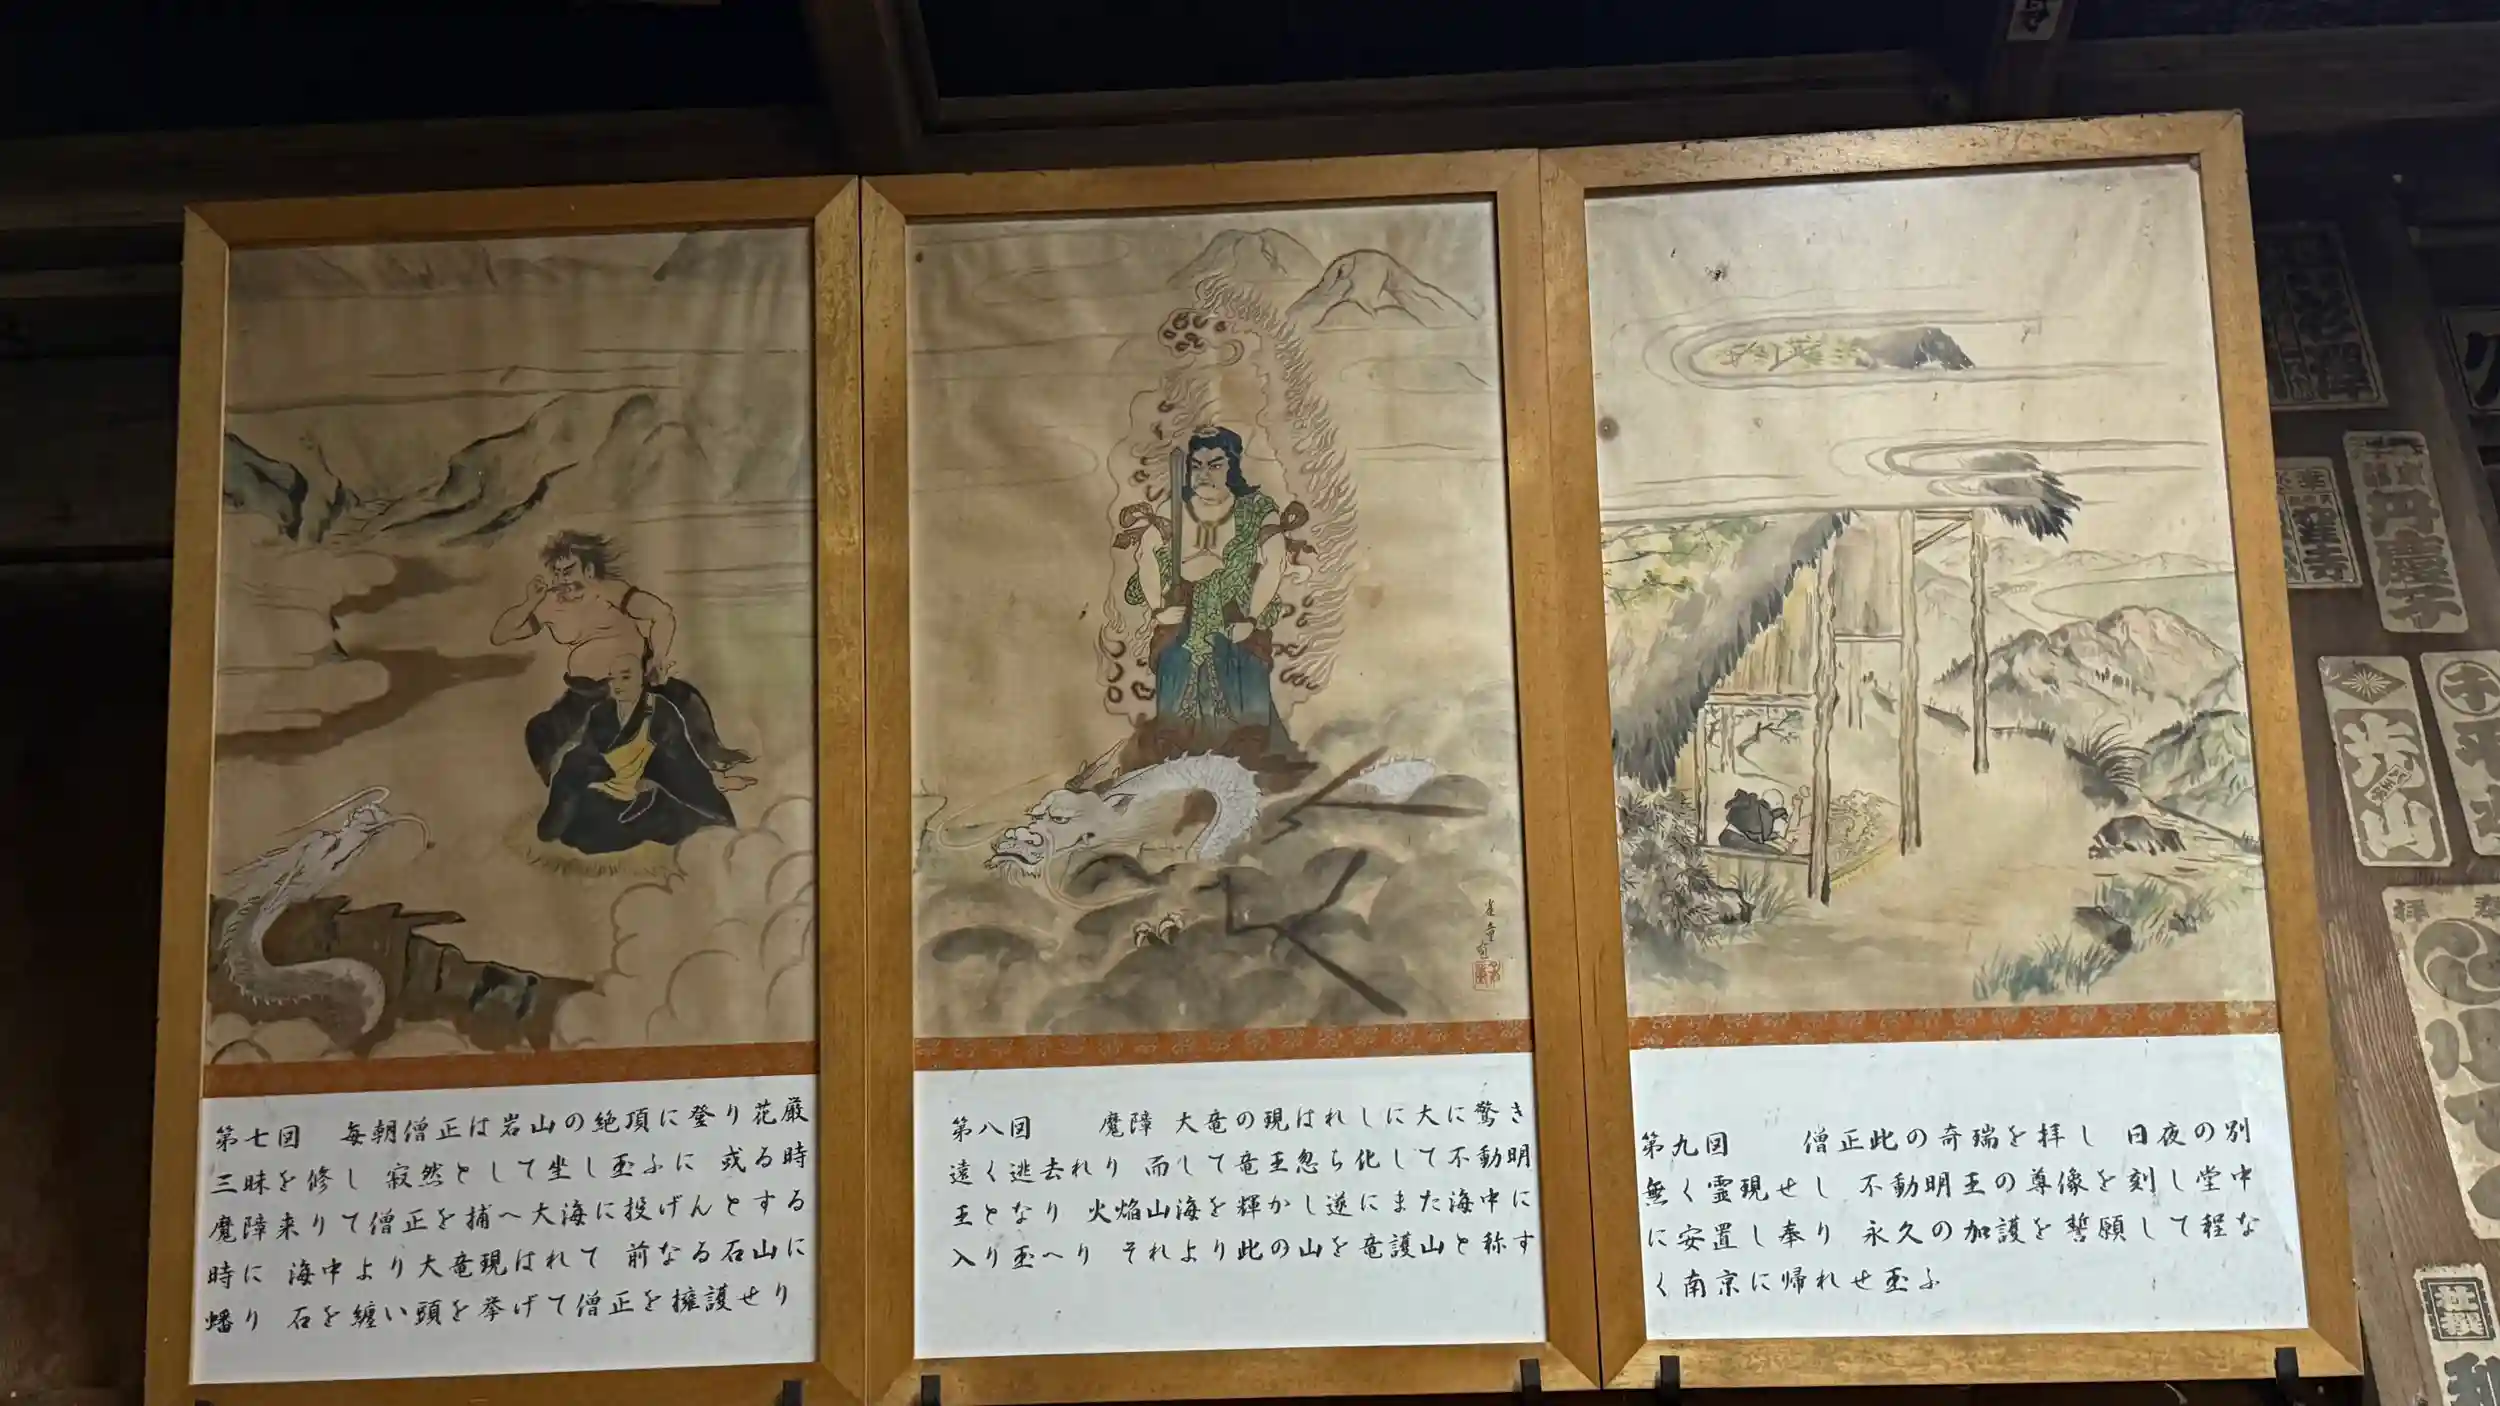 第七回 毎朝僧正は岩山の絶頂に登り花厳
三昧を修し 寂然として坐し玉ふに 或る時
魔障来りて僧正を捕へ大海に投げんとする
時に 海中より大竜現はれて 前なる石山に
蟠り 石を纏い頭を挙げて僧正を擁護せり
第八回 魔障 大竜の現はれしに大に驚き
遠く逃去れり 而して竜王忽ち化して不動明
王となり 火焔山海を輝かし遂にまた海中に
入り玉へり それより此の山を竜護山と称す
第九回 僧正此の奇瑞を拝し 日夜の別
無く霊現せし 不動明王の尊像を刻し堂中
に安置し奉り 永久の加護を誓願して程な
く南京に帰れせ玉ふ
丹慶子
歩山